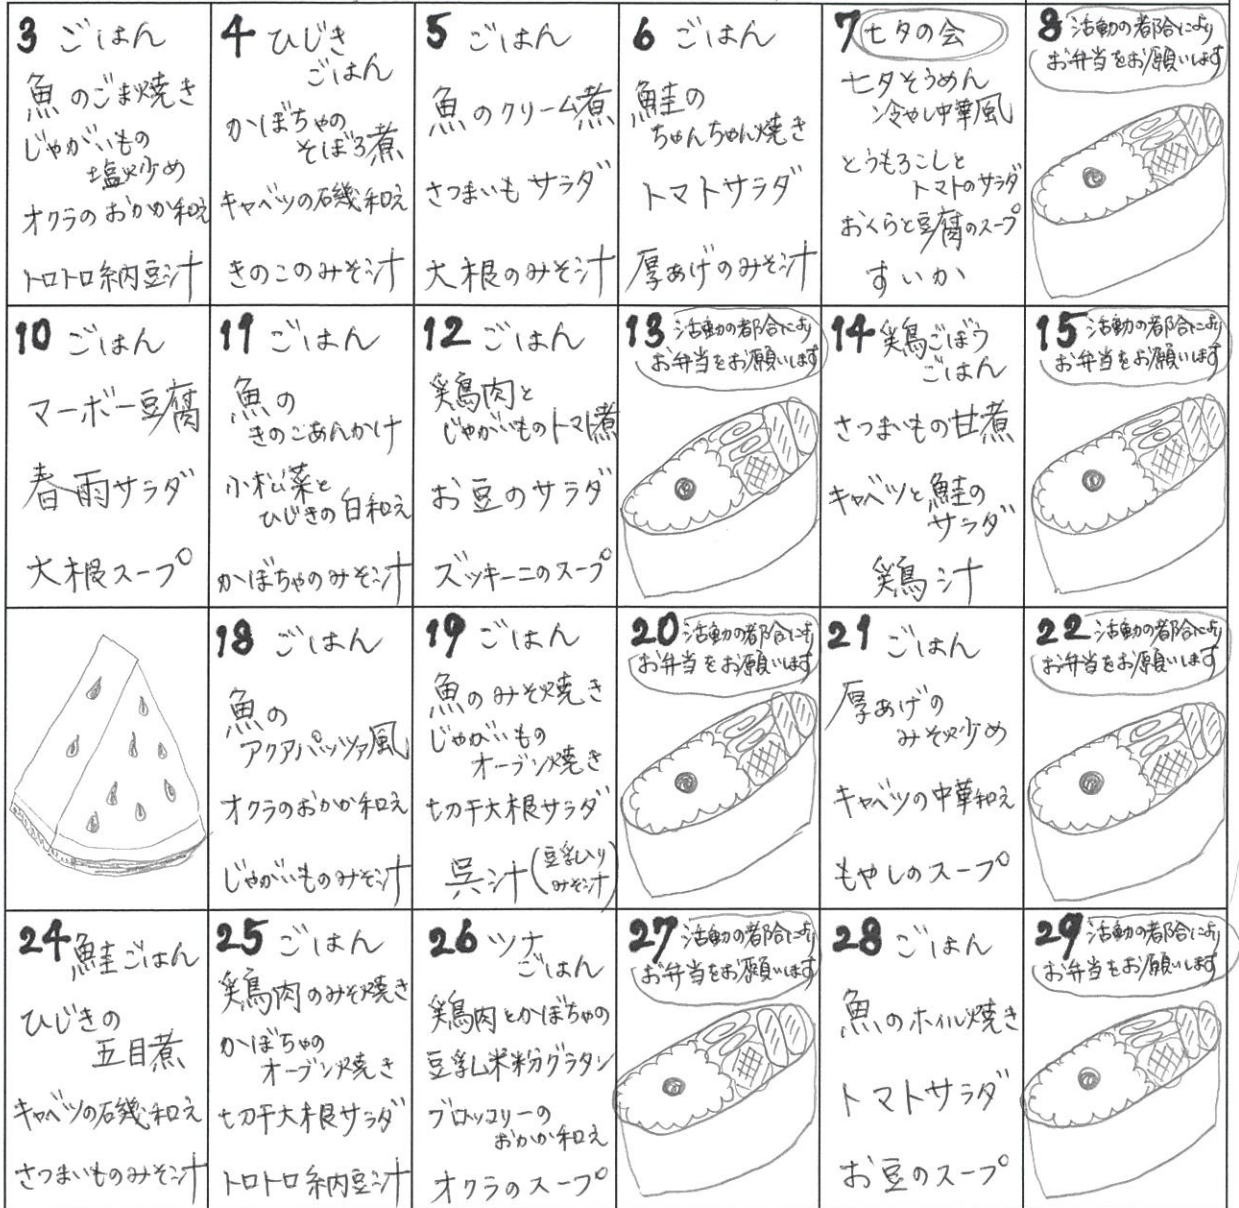 3 ごはん
魚のごま焼き
じゃがいもの
塩炒め
オクラのおかか和え
トロトロ納豆汁
4 ひじき
ごはん
かぼちゃの
そぼろ煮
キャベツの磯和え
きのこのみそ汁
5 ごはん
魚のクリーム煮
さつまいもサラダ
大根のみそ汁
6 ごはん
鮭の
ちゃんちゃん焼き
トマトサラダ
厚あげのみそ汁
7 七夕の会
七夕そうめん
冷やし中華風
とうもろこしと
トマトのサラダ
おくらと豆腐のスープ
すいか
8 活動の都合により
お弁当をお願いします
10 ごはん
マーボー豆腐
春雨サラダ
大根スープ
11 ごはん
魚の
きのこあんかけ
小松菜と
ひじきの白和え
かぼちゃのみそ汁
12 ごはん
鶏肉と
じゃがいものトマト煮
お豆のサラダ
ズッキーニのスープ
13 活動の都合により
お弁当をお願いします
14 鶏ごぼう
ごはん
さつまいもの甘煮
キャベツと鮭の
サラダ
鶏汁
15 活動の都合により
お弁当をお願いします
18 ごはん
魚の
アクアパッツァ風
オクラのおかか和え
じゃがいものみそ汁
19 ごはん
魚のみそ焼き
じゃがいもの
オーブン焼き
切干大根サラダ
呉汁(豆乳入り
みそ汁)
20 活動の都合により
お弁当をお願いします
21 ごはん
厚あげの
みそ炒め
キャベツの中華和え
もやしのスープ
22 活動の都合により
お弁当をお願いします
24 鮭ごはん
ひじきの
五目煮
キャベツの磯和え
さつまいものみそ汁
25 ごはん
鶏肉のみそ焼き
かぼちゃの
オーブン焼き
切干大根サラダ
トロトロ納豆汁
26 ツナ
ごはん
鶏肉とかぼちゃの
豆乳米粉グラタン
ブロッコリーの
おかか和え
オクラのスープ
27 活動の都合により
お弁当をお願いします
28 ごはん
魚のホイル焼き
トマトサラダ
お豆のスープ
29 活動の都合により
お弁当をお願いします